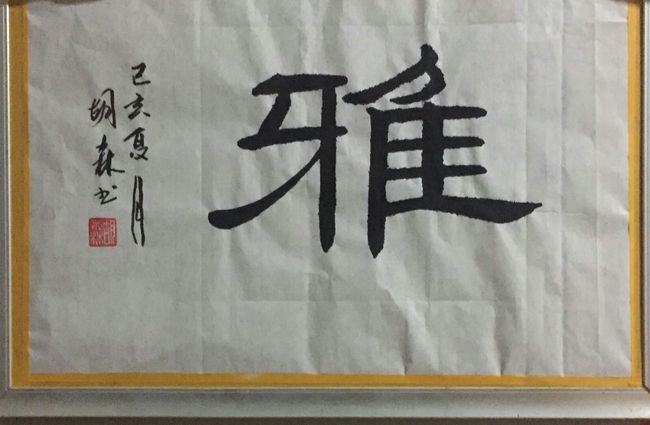 雅
己亥夏月
胡森书